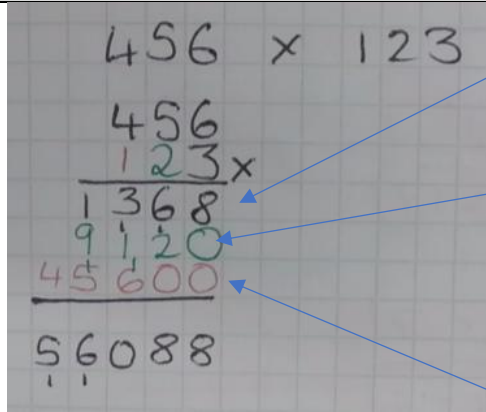 456 × 123
456
123×
1368
9120
45600
56088